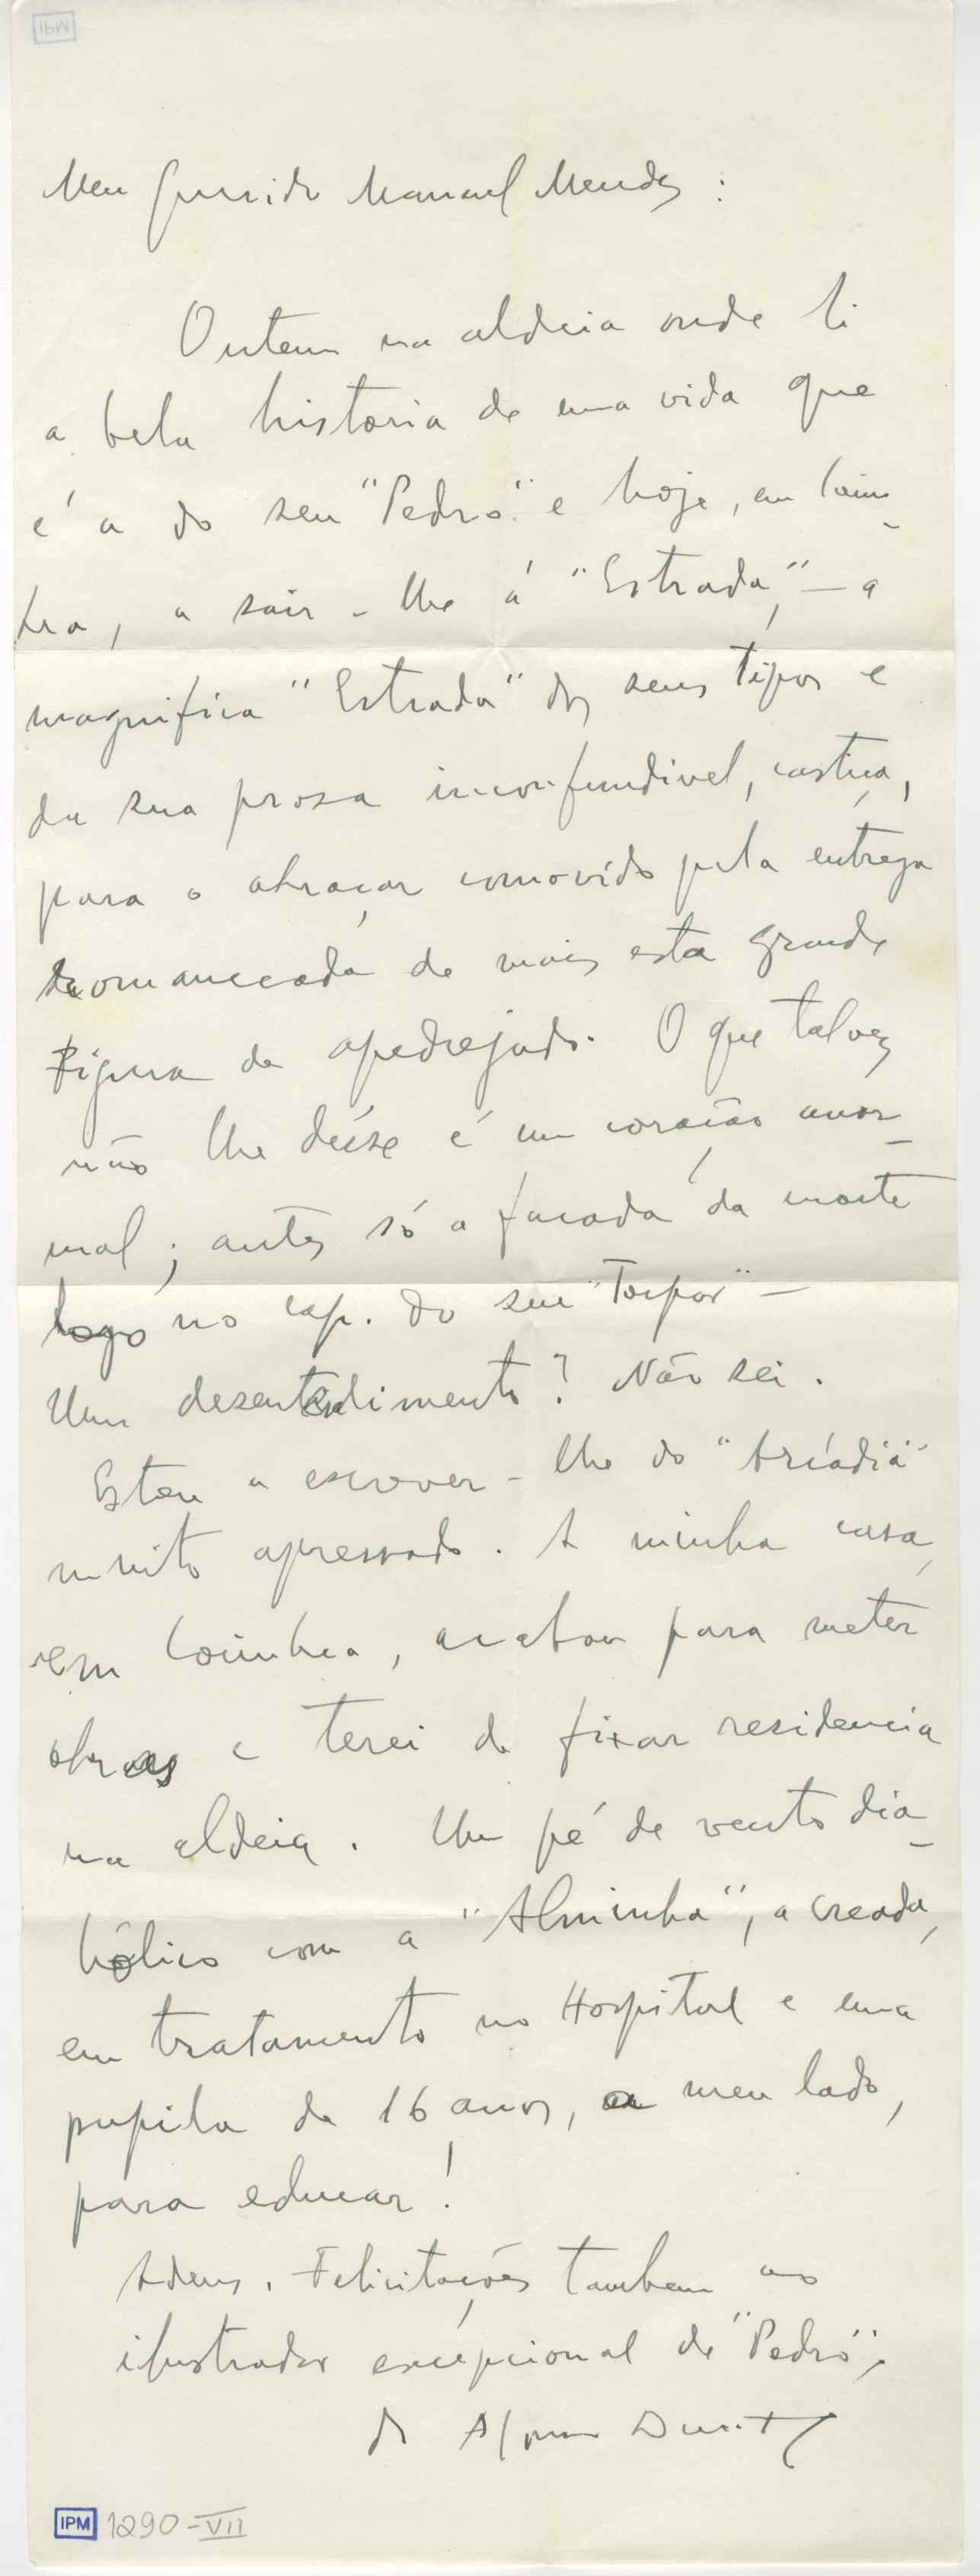 Meu Querido Manuel Mendes :
Ontem na aldeia onde li
a bela historia de uma vida que
é a do seu "Pedro" e hoje, em Coim-
bra, a sair-lhe á "Estrada", — a
magnifica "Estrada" dos seus tipos e
da sua prosa inconfundivel, castiça,
para o abraçar comovido pela entrega
romanceada de mais esta grande
Figura de apedrejado. O que talvez
não lhe désse é um coração anor-
mal ; antes só a facada da morte
logo no cap. do seu "Torpor" —
Um desentendimento ? Não sei .
Estou a escrever-lhe do "Arcádia"
muito apressado . A minha casa,
em Coimbra, acabou para meter
obras e terei de fixar residencia
na aldeia . Um pé de vento dia-
bólico com a "Alminha", a creada,
em tratamento no Hospital e uma
pupila de 16 anos, ao meu lado,
para educar !
Adeus . Felicitações tambem ao
ilustrador excepcional de "Pedro",
do Afonso Duarte
IPM 1290-VII